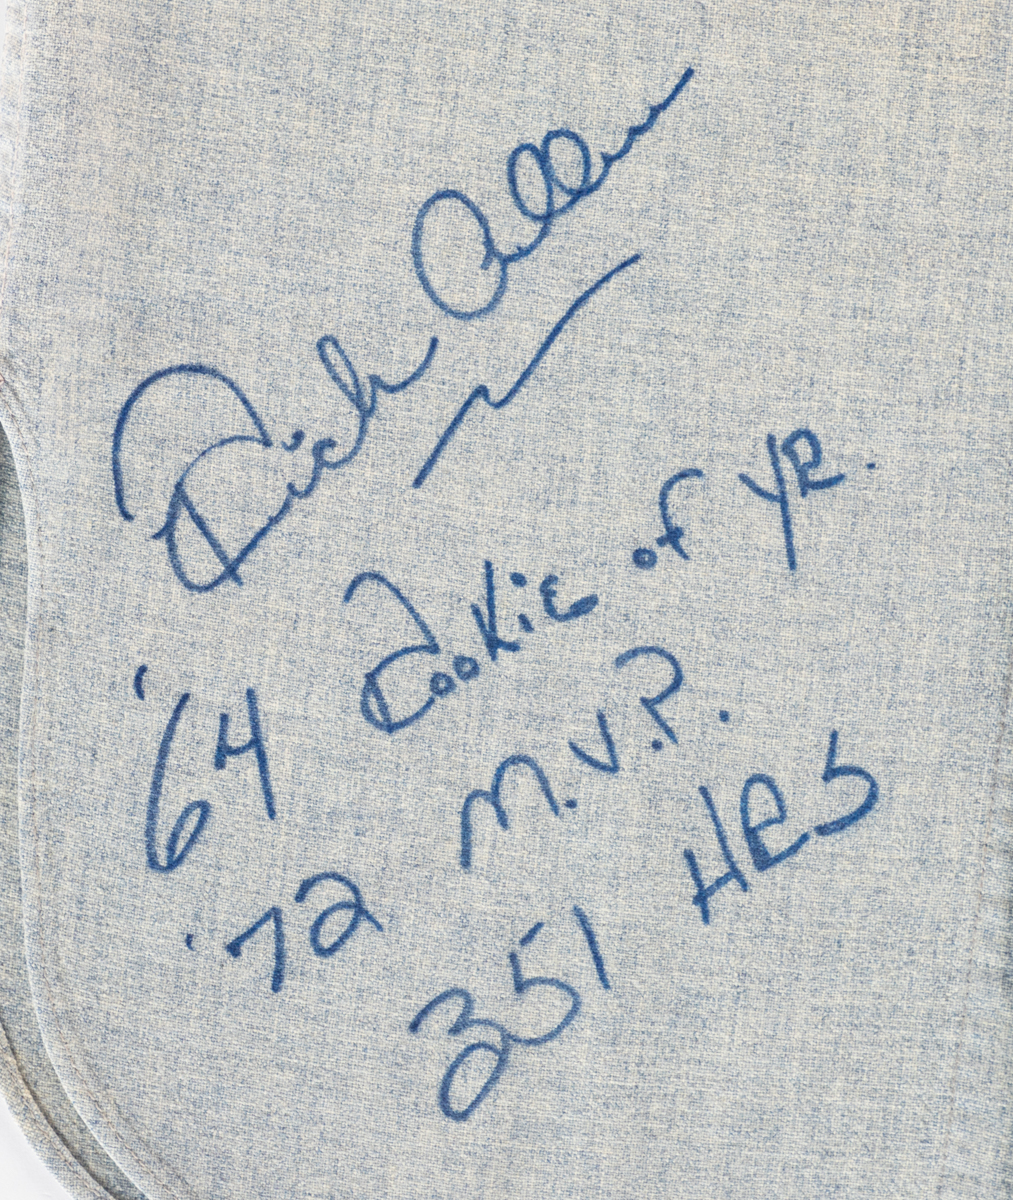 Rich Allen
'64 Rookie of YR.
'72 M.V.P.
351 HRS